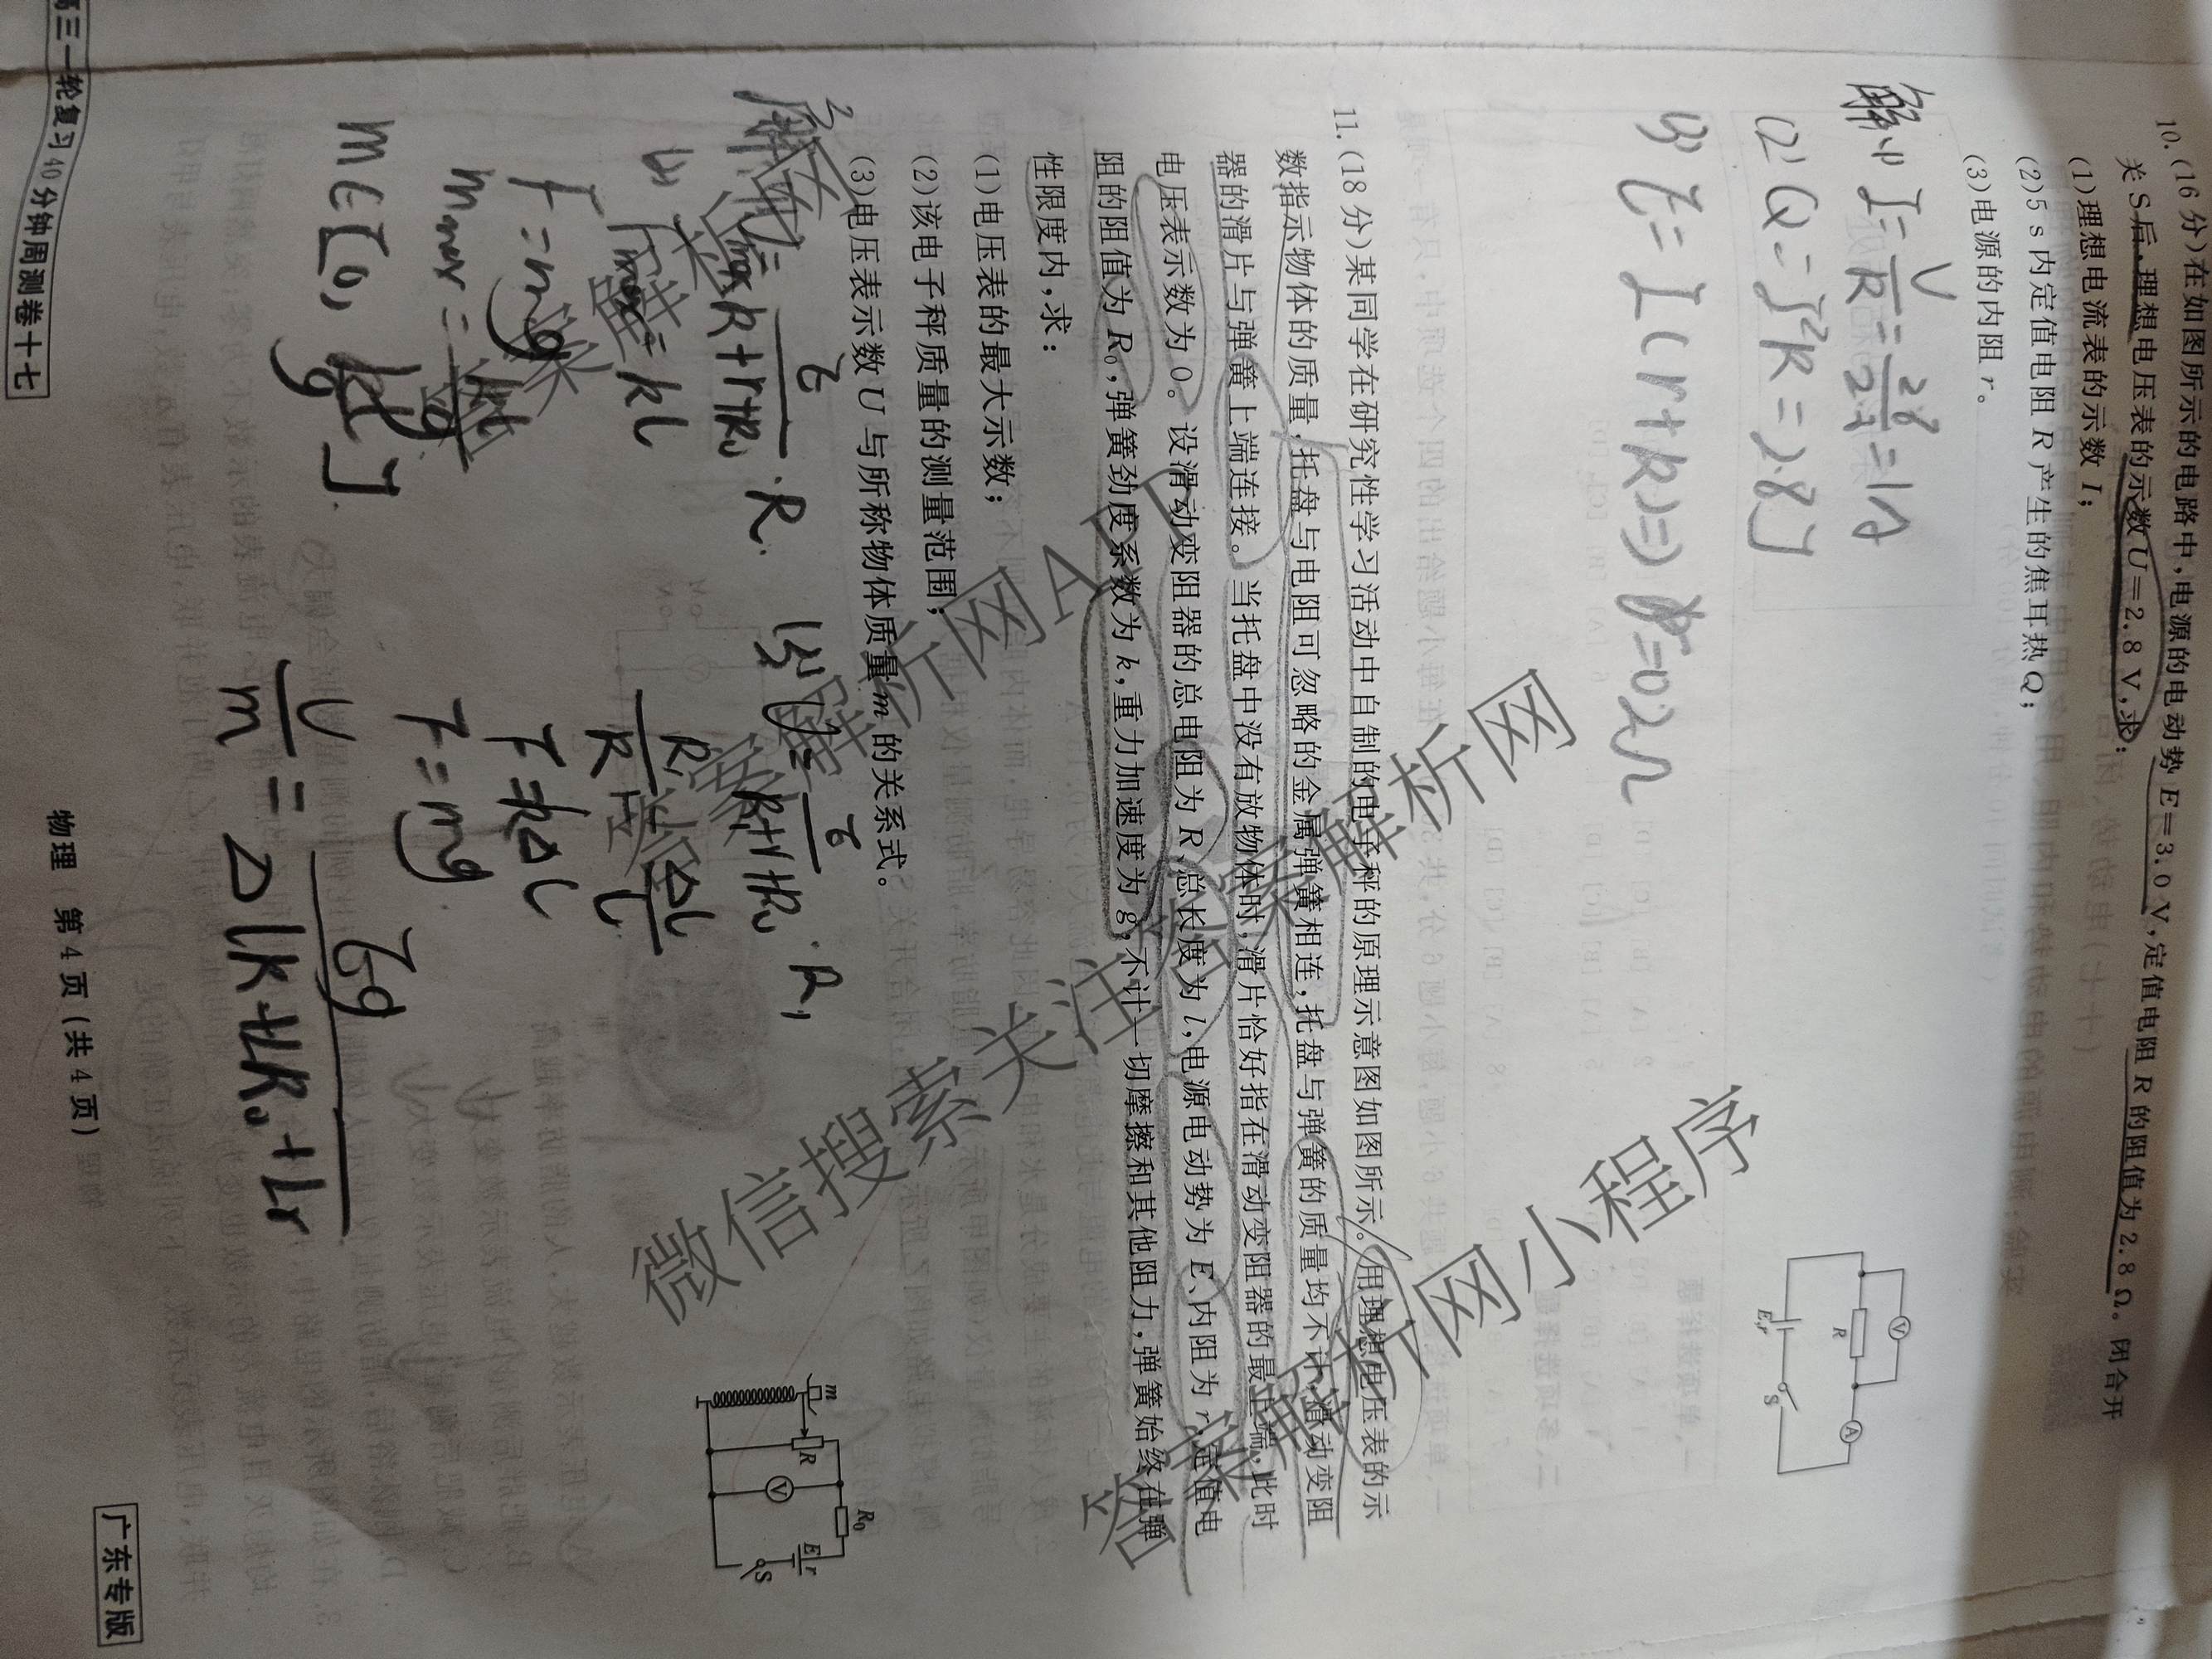 10.(16分)在如图所示的电路中,电源的电动势E=3.0 V,定值电阻R的阻值为2.8 Ω。闭合开
关S后,理想电压表的示数U=2.8 V,求:
(1)理想电流表的示数I;
(2)5 s内定值电阻R产生的焦耳热Q;
(3)电源的内阻r。
V
R
A
E,r
S
解(1) I=U/R=2.8/2.8=1A
(2) Q=I²R=2.8J
(3) E=I(r+R)⇒r=0.2Ω
11.(18分)某同学在研究性学习活动中自制的电子秤的原理示意图如图所示。用理想电压表的示
数指示物体的质量,托盘与电阻可忽略的金属弹簧相连,托盘与弹簧的质量均不计,滑动变阻
器的滑片与弹簧上端连接。当托盘中没有放物体时,滑片恰好指在滑动变阻器的最上端,此时
电压表示数为0。设滑动变阻器的总电阻为R,总长度为l,电源电动势为E、内阻为r,定值电
阻的阻值为R₀,弹簧劲度系数为k,重力加速度为g,不计一切摩擦和其他阻力,弹簧始终在弹
性限度内,求:
(1)电压表的最大示数;
(2)该电子秤质量的测量范围;
(3)电压表示数U与所称物体质量m的关系式。
m
R
V
R₀
E r
S
解(1) Umax=E/(R+r+R₀)·R
(2) Fmax=kl
F=mg
mmax=kl/g
m∈[0, kl/g]
(3) U=E/(R+r+R₀)·R₁
R₁/R=Δl/l
F=kΔl
F=mg
高三一轮复习40分钟周测卷十七
物理 第4页(共4页)
广东专版
微信搜索关注
答案解析网小程序
答案解析网APP